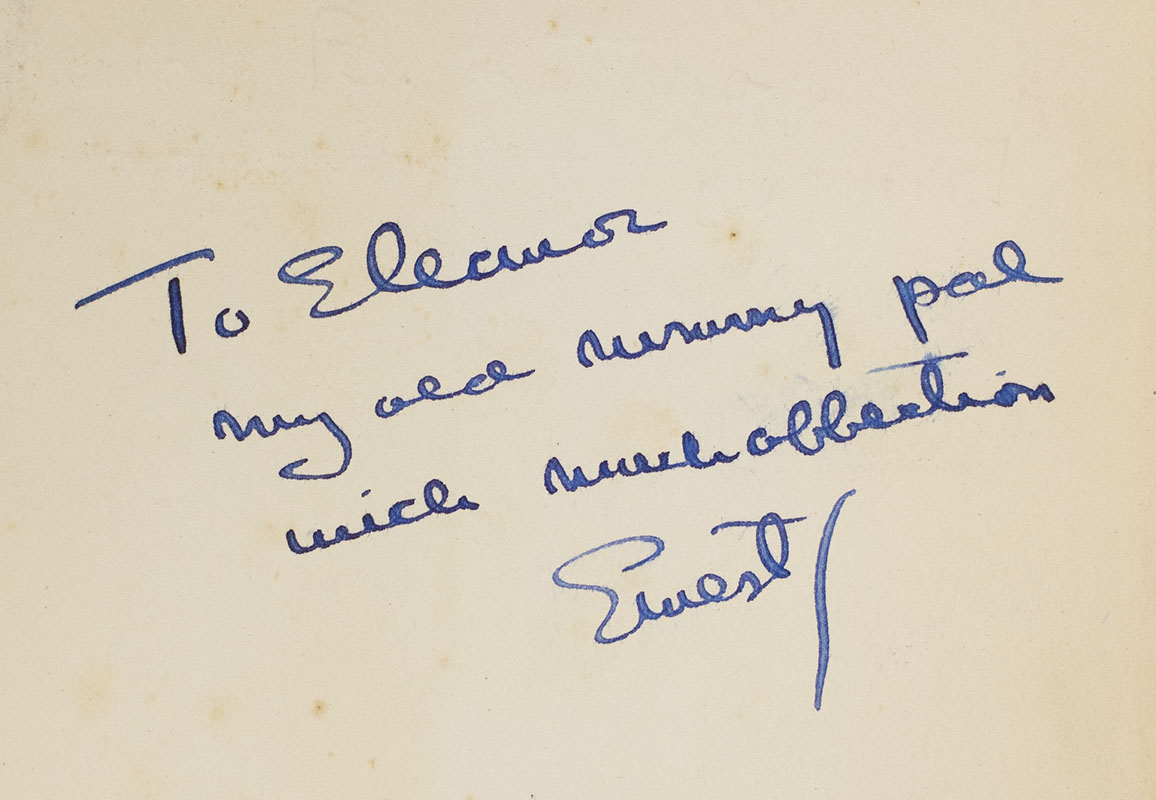 To Eleanor
my old pal
with much affection
Ernest